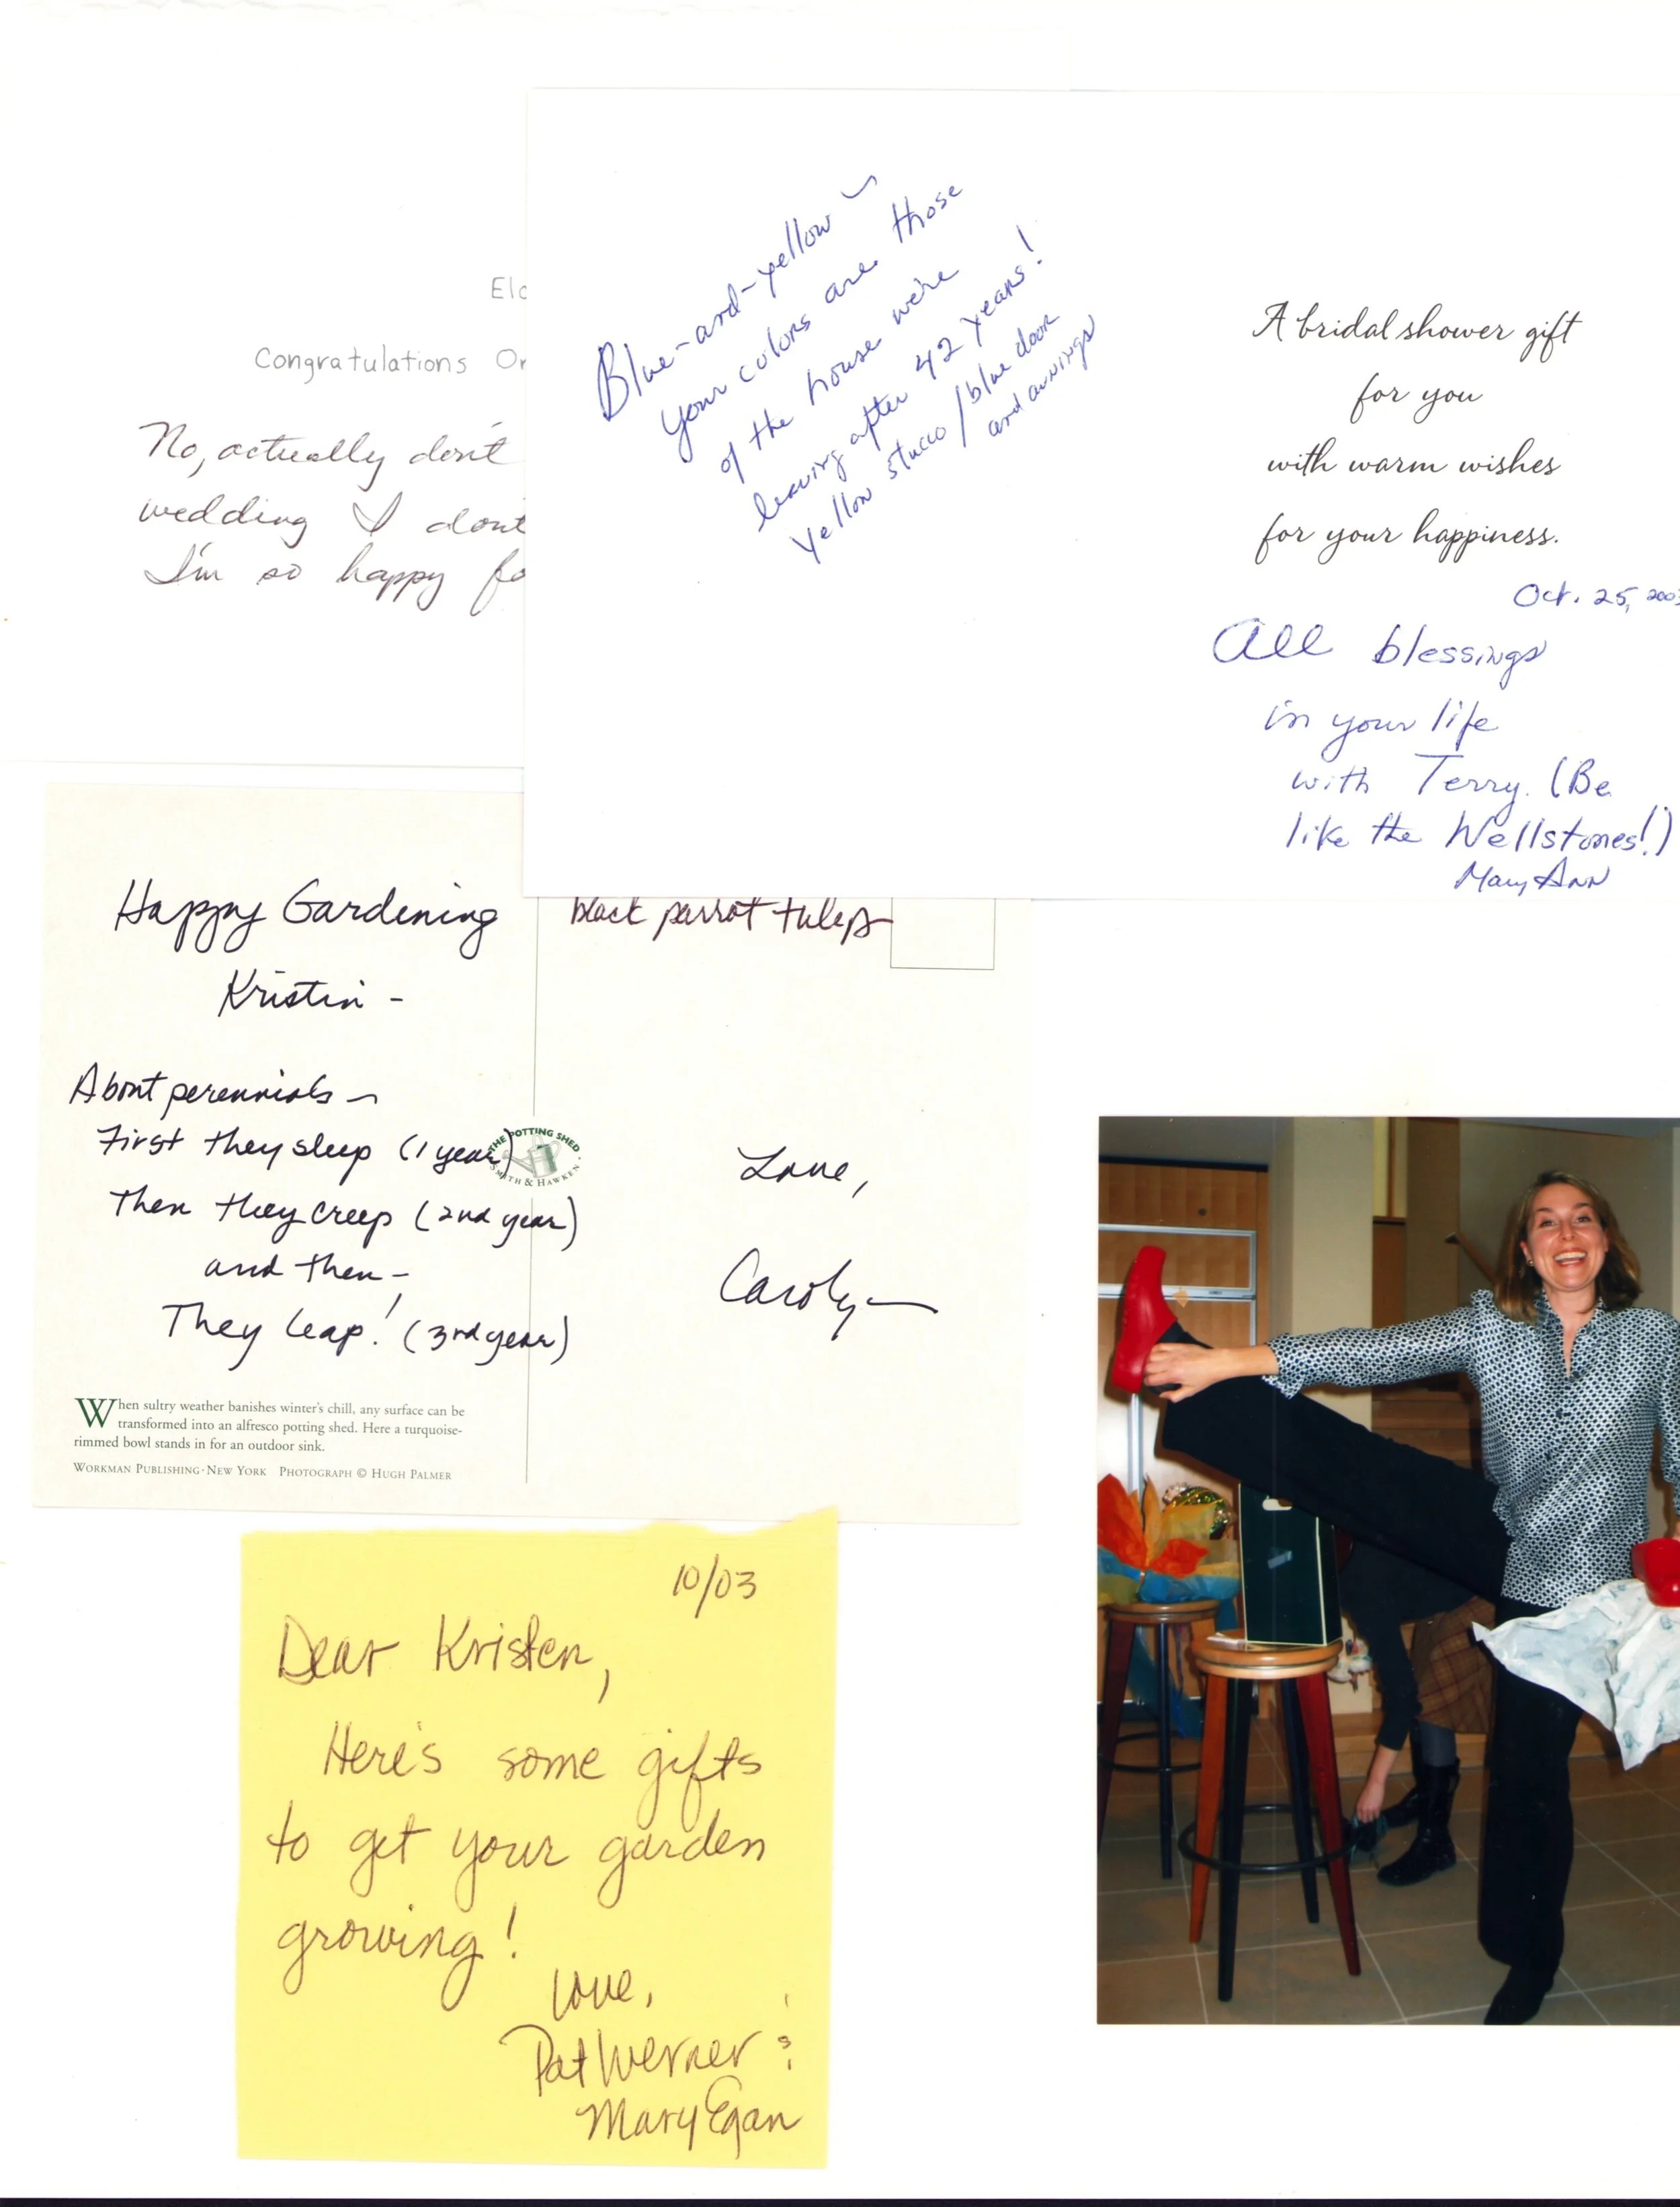 Congratulations
No, actually don't
wedding I don't
I'm so happy
Blue-and-yellow ~
your colors are those
of the house we're
leaving after 42 years!
Yellow stucco / blue door
and awnings
A bridal shower gift
for you
with warm wishes
for your happiness.
Oct. 25, 2003
All blessings
in your life
with Terry. (Be
like the Wellstones!)
Mary Ann
Happy Gardening
Kristin -
About perennials ~
First they sleep (1 year)
Then they creep (2nd year)
and then -
They leap! (3rd year)
black parrot tulips
THE POTTING SHED
SMITH & HAWKEN
Love,
Carolyn
When sultry weather banishes winter's chill, any surface can be
transformed into an alfresco potting shed. Here a turquoise-
rimmed bowl stands in for an outdoor sink.
WORKMAN PUBLISHING · NEW YORK PHOTOGRAPH © HUGH PALMER
10/03
Dear Kristen,
Here's some gifts
to get your garden
growing!
Love,
Pat Werner &
Mary Egan